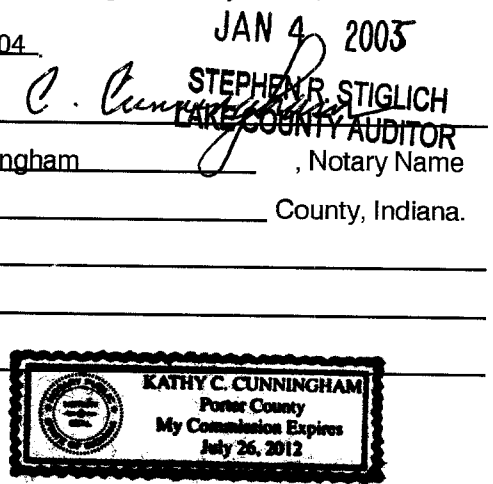 JAN 4 2005
04.
C. Cunningham
STEPHEN R. STIGLICH
LAKE COUNTY AUDITOR
ngham , Notary Name
County, Indiana.
KATHY C. CUNNINGHAM
Porter County
My Commission Expires
July 26, 2012